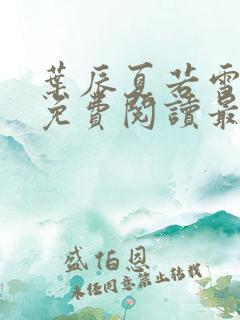 葉辰夏若雪
免費閱讀最
盛伯恩
未经同意禁止转载